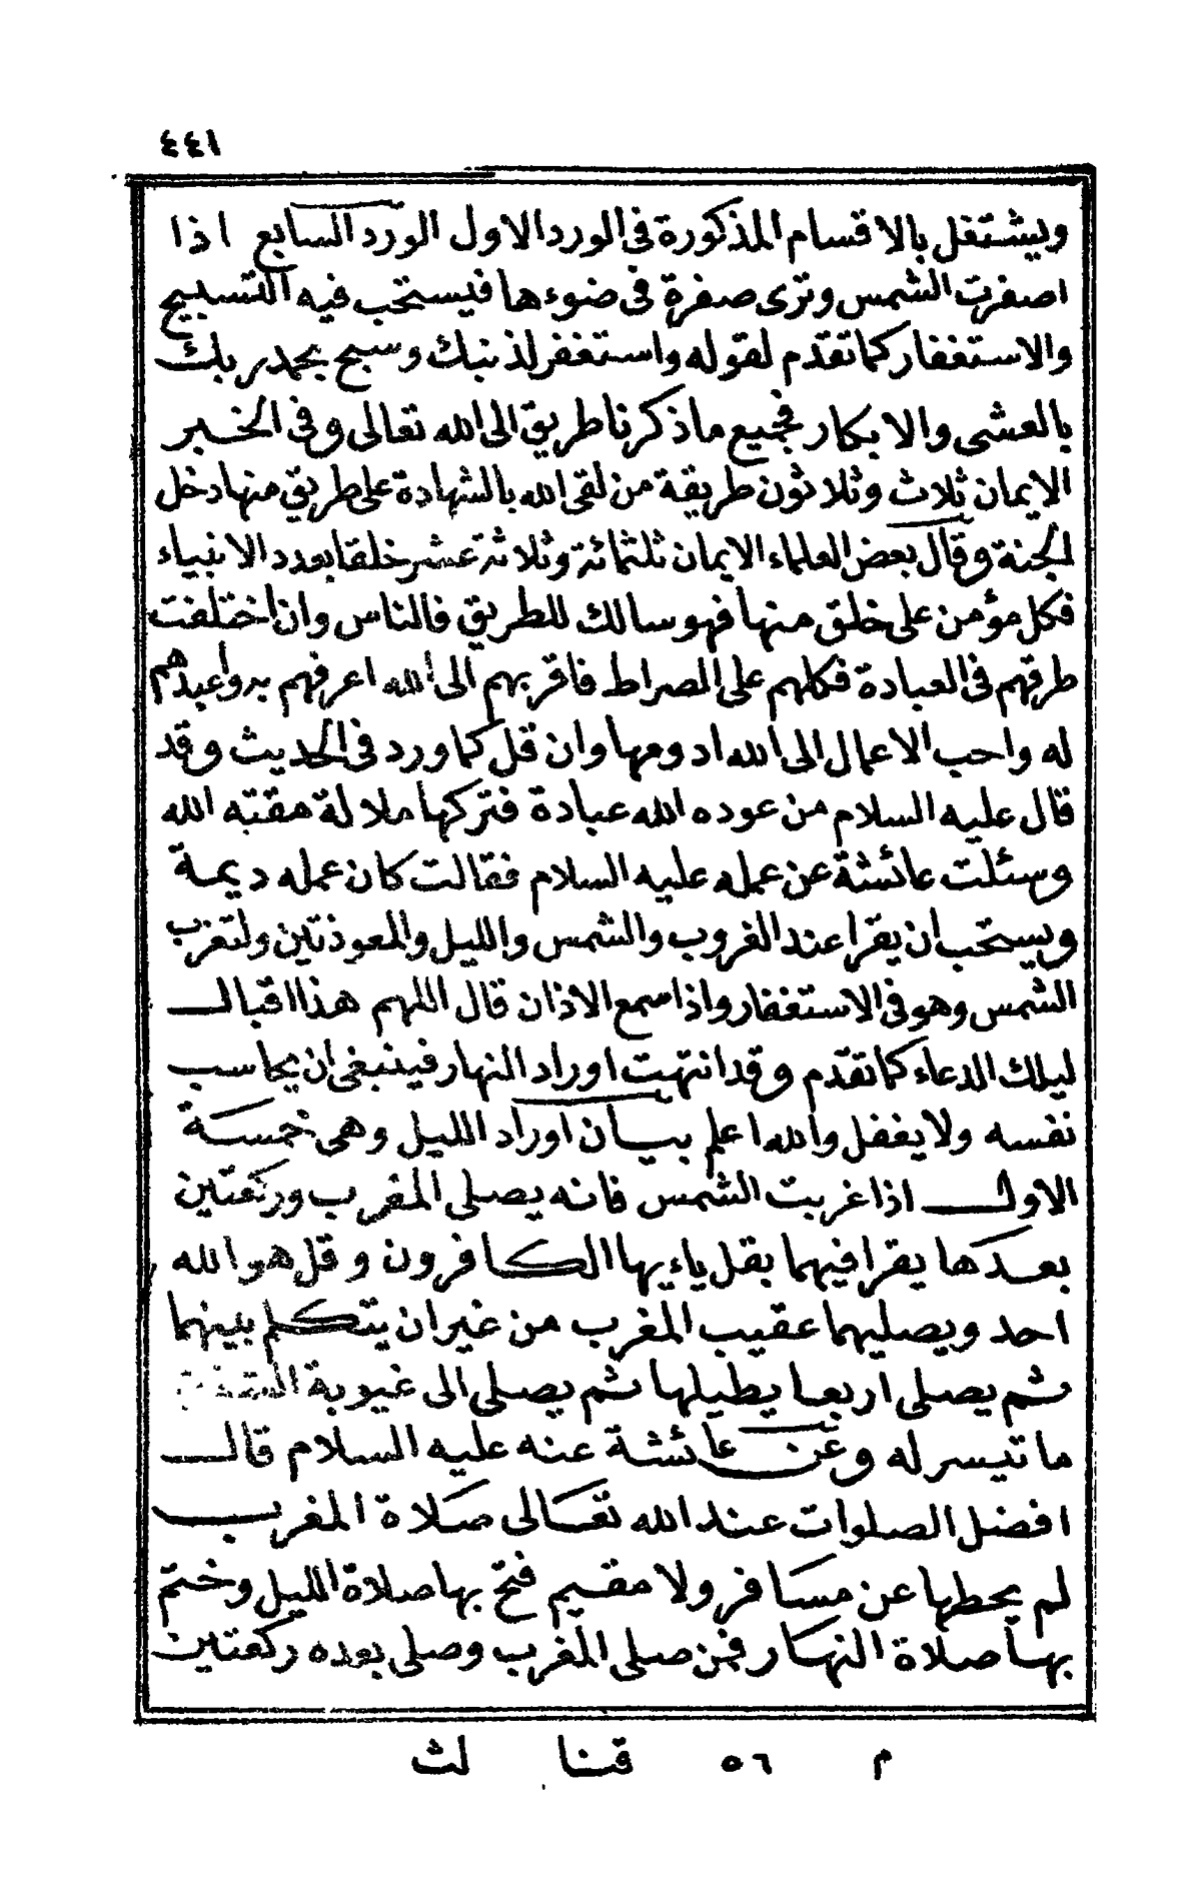 ٤٤١
ويشتغل بالاقسام المذكورة فى الورد الاول الورد السابع اذا
اصفرت الشمس وترى صفرة فى ضوءها فيستحب فيه التسبيح
والاستغفار كما تقدم لقوله واستغفر لذنبك وسبح بحمد ربك
بالعشى والابكار فجميع ما ذكرنا طريق الى الله تعالى وفى الخبر
الايمان ثلاث وثلاثون طريقة من لقى الله بالشهادة على طريق منها دخل
الجنة وقال بعض العلماء الايمان ثلثمائة وثلاثة عشر خلقا بعدد الانبياء
فكل مؤمن على خلق منها فهو سالك للطريق فالناس وان اختلفت
طرقهم فى العبادة فكلهم على الصراط فاقربهم الى الله اعرفهم به واعبدهم
له واحب الاعمال الى الله ادومها وان قل كما ورد فى الحديث وقد
قال عليه السلام من عوده الله عبادة فتركها ملالة مقته الله
وسئلت عائشة عن عمله عليه السلام فقالت كان عمله ديمة
ويستحب ان يقرا عند الغروب والشمس والليل والمعوذتين ولتغرب
الشمس وهو فى الاستغفار واذا سمع الاذان قال اللهم هذا اقبال
ليلك الدعاء كما تقدم وقد انتهت اوراد النهار فينبغى ان يحاسب
نفسه ولا يغفل والله اعلم بيان اوراد الليل وهى خمسة
الاول اذا غربت الشمس فانه يصلى المغرب وركعتين
بعدها يقرا فيهما بقل ياءيها الكافرون وقل هو الله
احد ويصليهما عقيب المغرب من غير ان يتكلم بينهما
ثم يصلى اربعا يطيلها ثم يصلى الى غيوبة الشفق
ما تيسر له وعن عائشة عنه عليه السلام قال
افضل الصلوات عند الله تعالى صلاة المغرب
لم يحطها عن مسافر ولا مقيم فتح بها صلاة الليل وختم
بها صلاة النهار فمن صلى المغرب وصلى بعده ركعتين
م ٥٦ قنا لث